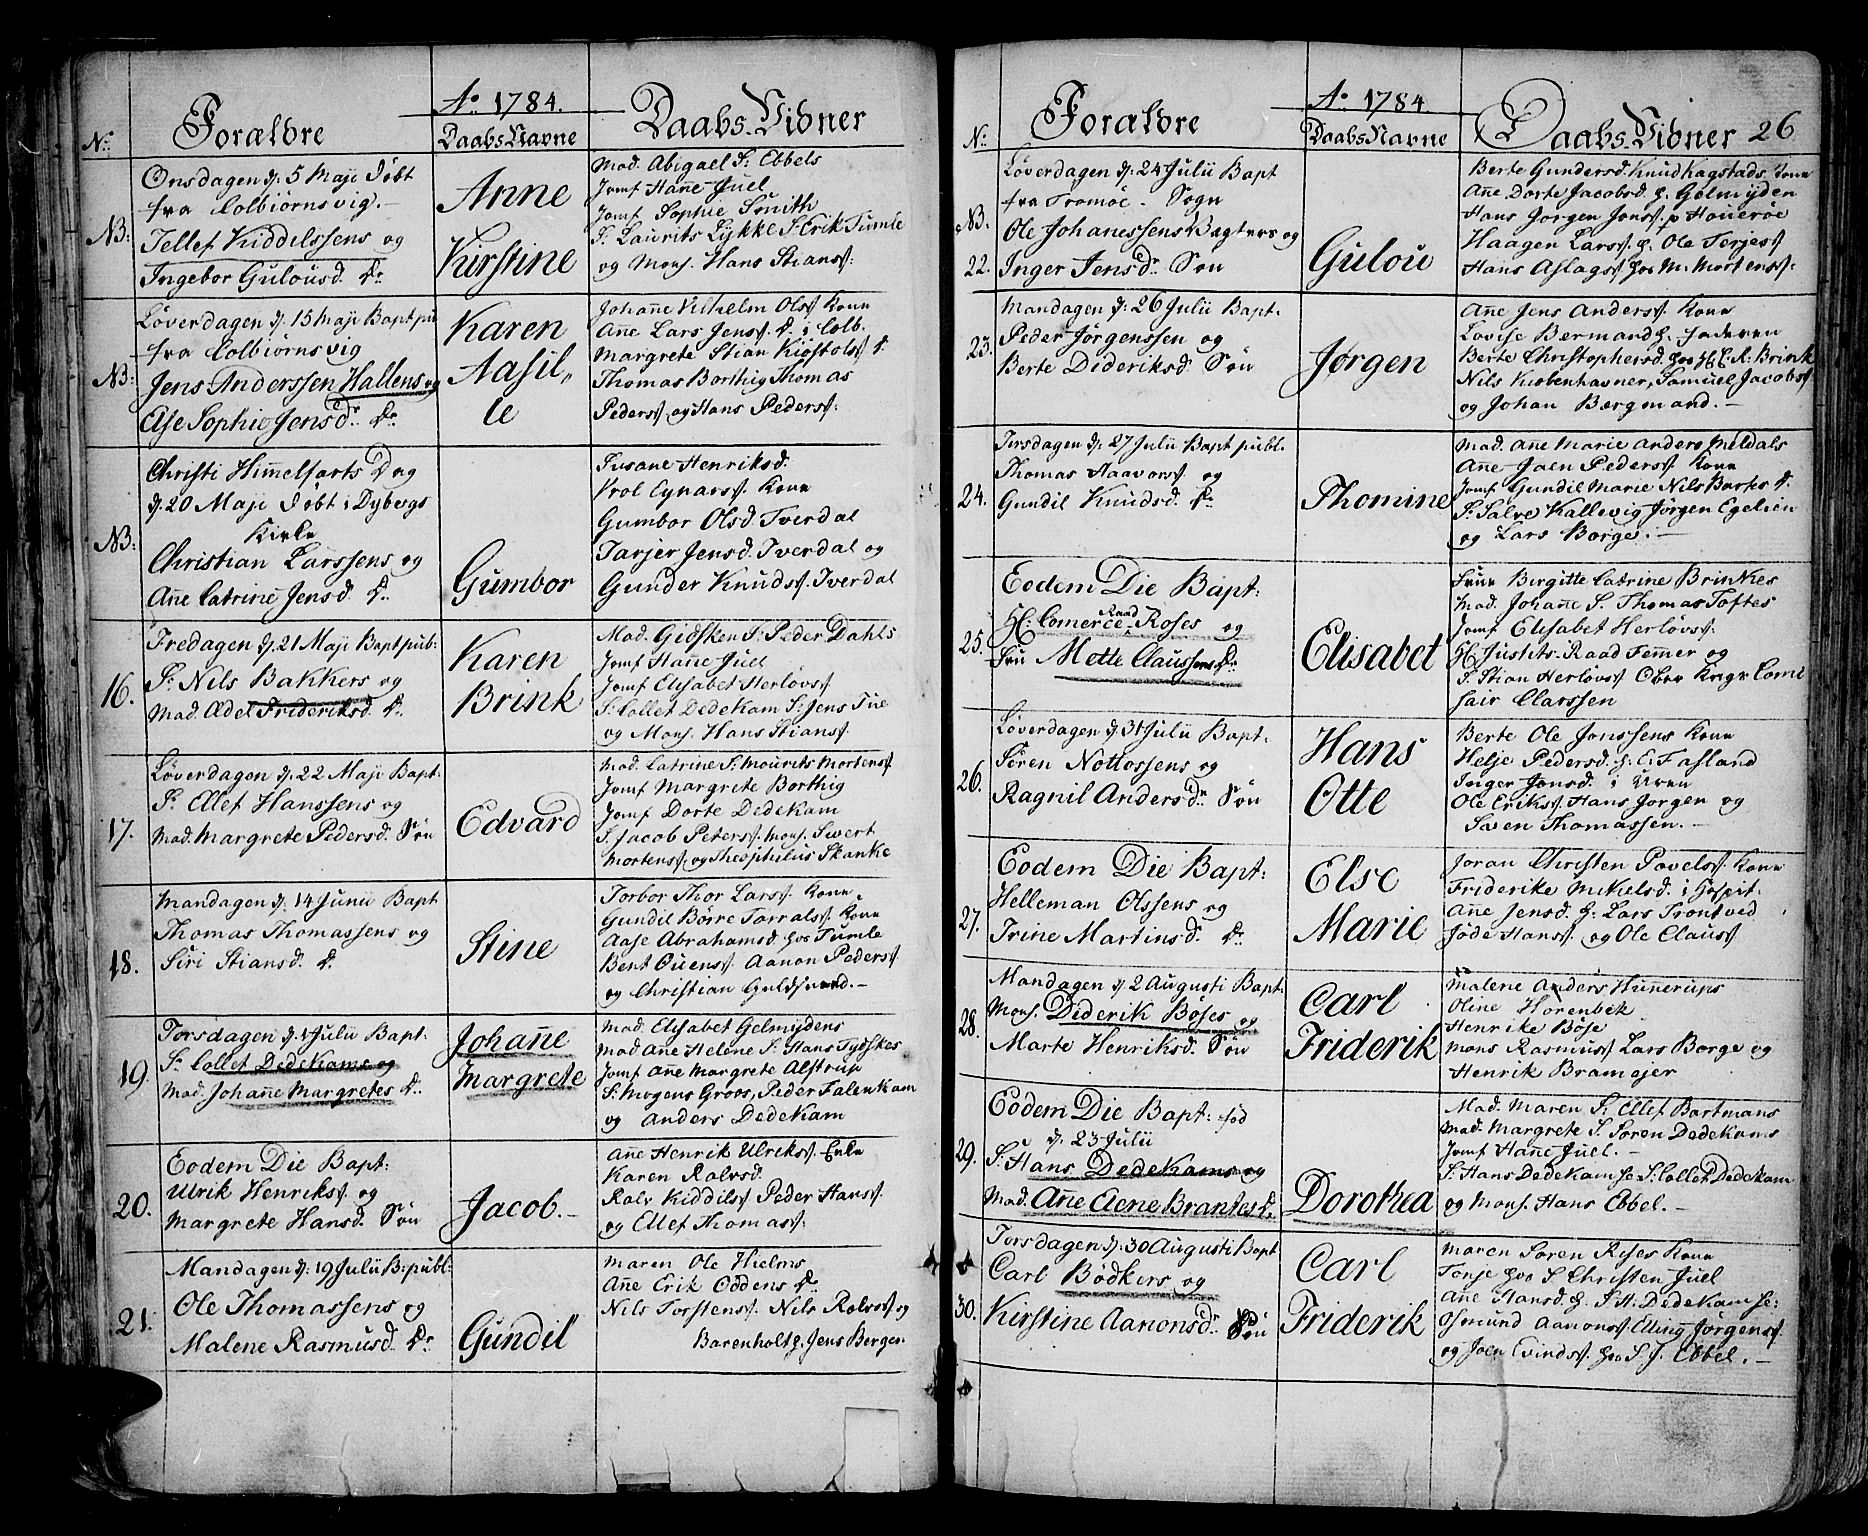 Ao. 1784.
No. Forældre Daabs Navne Daabs Vidner
Onsdagen d. 5 Maji døbt
fra Colbiørnsvig.-
NB: Tellef Kiddelssens og
Ingebor Gulousd. Dr.
Anne
Kirstine
Mad. Abigael Sr. Ebbels
Jomf Hañe Juel
Jomf Sophie Smith
Sr. Laurits Lykke Sr. Erik Tumle
og Mons. Hans Stians:
Løverdagen d. 15 Maji Bapt pu
fra Colbiørnsvig
NB: Jens Anderssen Hallens og
Ase Sophie Jensdr. Dr.
Karen
Aasil„
le
Johañe Vilhelm Ols Kone
Añe Lars Jens. Dr. i Colb.
Margrete Stian Kiøstols Dr.
Thomas Borthig Thomas
Peders og Hans Peders:
Christi Himelfarts Dag
d. 20 Maji døbt i Dybergs
Kirke
NB: Christian Larssens og
Añe Catrine Jensd. Dr.
Gumbor
Susane Henriksd.
Prol Eynars. Kone
Gumbor Olsd. Tverdal
Tarjer Jensd. Tverdal og
Gunder Knuds. Tverdal
Fredagen d. 21 Maji Bapt pub:
Sr. Nils Bakkers og
16. Mad. Ædel Frideriksd. Dr.
Karen
Brink
Mad. Gidsken Sr. Peder Dahls
Jomf Hañe Juel
Jomf Elisabet Herløvs
Sr. Collet Dedekam Sr. Jens Tue
og Mons. Hans Stians.
Løverdagen d. 22 Maji Bapt:
Sr. Ellef Hanssens og
17. Mad. Margrete Pedersd. Søn
Edvard
Mad. Catrine Sr. Mourits Mortens
Jomf Margrete Borthig
Jomf Dorte Dedekam
Sr. Jacob Peters. Mons. Sivert
Mortens og Theophilus Skanke
Mandagen d. 14 Junii Bapt
Thomas Thomassens og
18. Siri Stiansd. Dr.
Stine
Torbor Thor Lars. Kone.
Gundil Børre Torrals. Kone
Aase Abrahamsd. hos Tumle
Bent Ouens. Aanon Peders
og Christian Guldsmed.-
Torsdagen d. 1 Julii Bapt:
Sr. Collet Dedekams og
19. Mad. Johañe Margretes Dr.
Johañe
Margrete
Mad. Elisabet Gelmÿdens
Mad Ane Helene Sr. Hans Tydskes
Jomf Añe Margrete Alstrup
Sr. Mogens Groos, Peder Falenkam
og Anders Dedekam
Eodem Die Bapt:
Ulrik Henriks. og
20. Margrete Hansd. Søn
Jacob.-
Añe Henrik Ulriks. Enke
Karen Ralvsd.
Ralv Kiddils Peder Hans.
og Ellef Thomas:
Mandagen d. 19 Julii B: publ:
Ole Thomassens og
21. Malene Rasmusd. Dr.
Gundil
Maren Ole Hielms
Añe Erik Oddens Dr.
Nils Torstens. Nils Ralvs og
Barenholt h. Jens Berger.
Ao. 1784.
No. Forældre Daabs Navne Daabs Vidner 26
Løverdagen d. 24 Julii Bapt
fra Tromøe Sogn
NB. Ole Johanessens Vagters og
22. Inger Jensdr. Søn
Gulou
Berte Gundersd. Knud Kagstads Kone
Añe Dorte Jacobsd. h. Gelmyden
Hans Jørgen Jons. p Houerøe
Haagen Lars. h. Ole Terjes
Hans Aslags hos M. Mortens:
Mandagen d. 26 Julii Bapt:
Peder Jørgenssen og
23. Berte Dideriksd. Søn
Jørgen
Añe Jens Anders. Kone
Lovise Bermand h. faderen
Berte Christophersd. hos H. C. R. Brink
Nils Kiøbenhavner, Samuel Jacobs
og Johan Bærgmand.-
Tirsdagen d. 27 Julii Bapt publ.
Thomas Haavors. og
24. Gundil Knudsd. Dr.
Thomine
Mad. Añe Marie Anders Meldals
Añe Joen Peders. Kone
Jomf Gundil Marie Nils Bortes Dr.
Sr. Salve Kallevig Jørgen Egelien
og Lars Borge.-
Eodem Die Bapt:
Hr. Comerce Raad Roses og
25. Fru Mette Claussens Dr.
Elisabet
Frue Birgitte Catrine Brinkes
Mad. Johañe Sr. Thomas Toftes
Jomf Elisabet Herløvs:
Hr. Justits Raad Femer og
Sr. Stian Herløvs Ober Krigs Comi
sair Clarssen
Løverdagen d. 31 Julii Bapt:
Søren Nottossens og
26. Ragnil Andersdr. Søn
Hans
Otte
Berte Ole Jonssens Kone
Helje Pedersd. h. C. Fasland
Inger Jonsd. i Uren
Ole Eriks. Hans Jørgen og
Sven Thomassen.-
Eodem Die Bapt:
Helleman Olssens og
27. Trine Martinsd. Dr.
Else
Marie
Joran Christen Povels. Kone
Friderike Mikelsd. i Hospit:
Añe Jensd. h. Lars Trontved
Jøde Hans. og Ole Claus
Mandagen d. 2 Augusti Bapt:
Mons. Diderik Bøses og
28. Marte Henriksd. Søn
Carl
Friderik
Malene Anders Huñerups
Oline Horenbek
Henrike Bøse
Mons Rasmus Lars Borge og
Henrik Bramejer
Eodem Die Bapt: fød
d. 23 Julii
29. Sr. Hans Dedekams og
Mad. Añe Aene Brantes Dr.
Dorothea
Mad. Maren Sr. Ellef Bortmans
Mad. Margrete Sr. Søren Dedekams
Jomf Hañe Juel.-
Sr. Hans Dedekam Se. Sr. Collet Dedekam
og Mons. Hans Ebbel.-
Torsdagen d. 30 Augusti Bapt
Carl Bødkers og
30. Kirstine Aanonsdr. Søn
Carl
Friderik
Maren Søren Roses Kone
Tonje hos Sr. Christen Juel
Añe Hansd. h. Sr. H. Dedekam Se:
Osmund Aanons Elling Jørgens.
og Joen Evinds. hos S. J. Ebbel.-